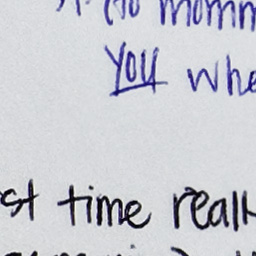 to momm
you whe
st time reall